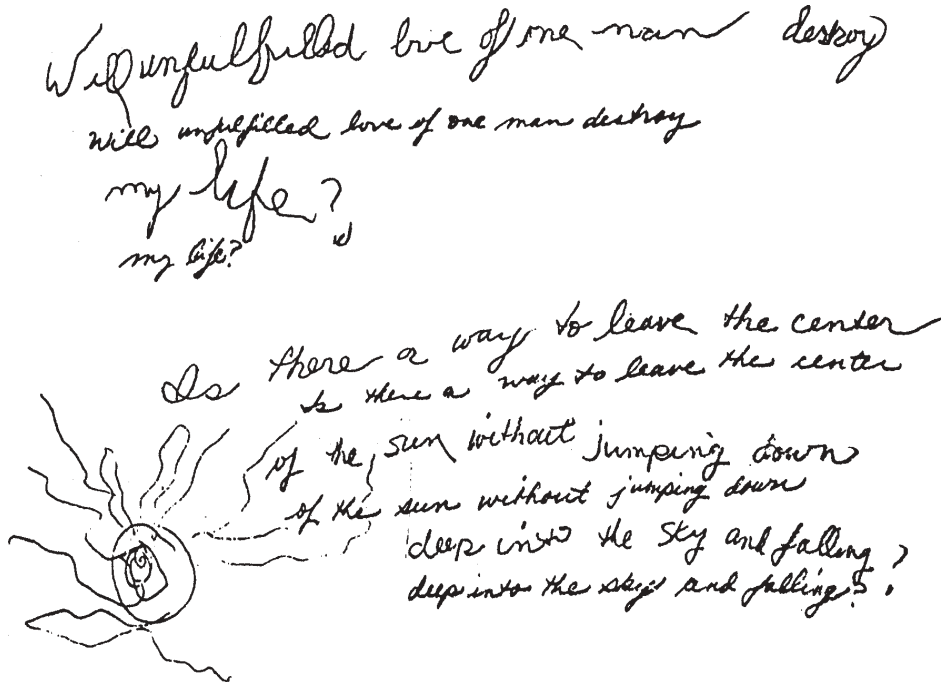 Will unfulfilled love of one man destroy
Will unfulfilled love of one man destroy
my life?
my life?
Is there a way to leave the center
Is there a way to leave the center
of the sun without jumping down
of the sun without jumping down
deep into the sky and falling?
deep into the sky and falling??